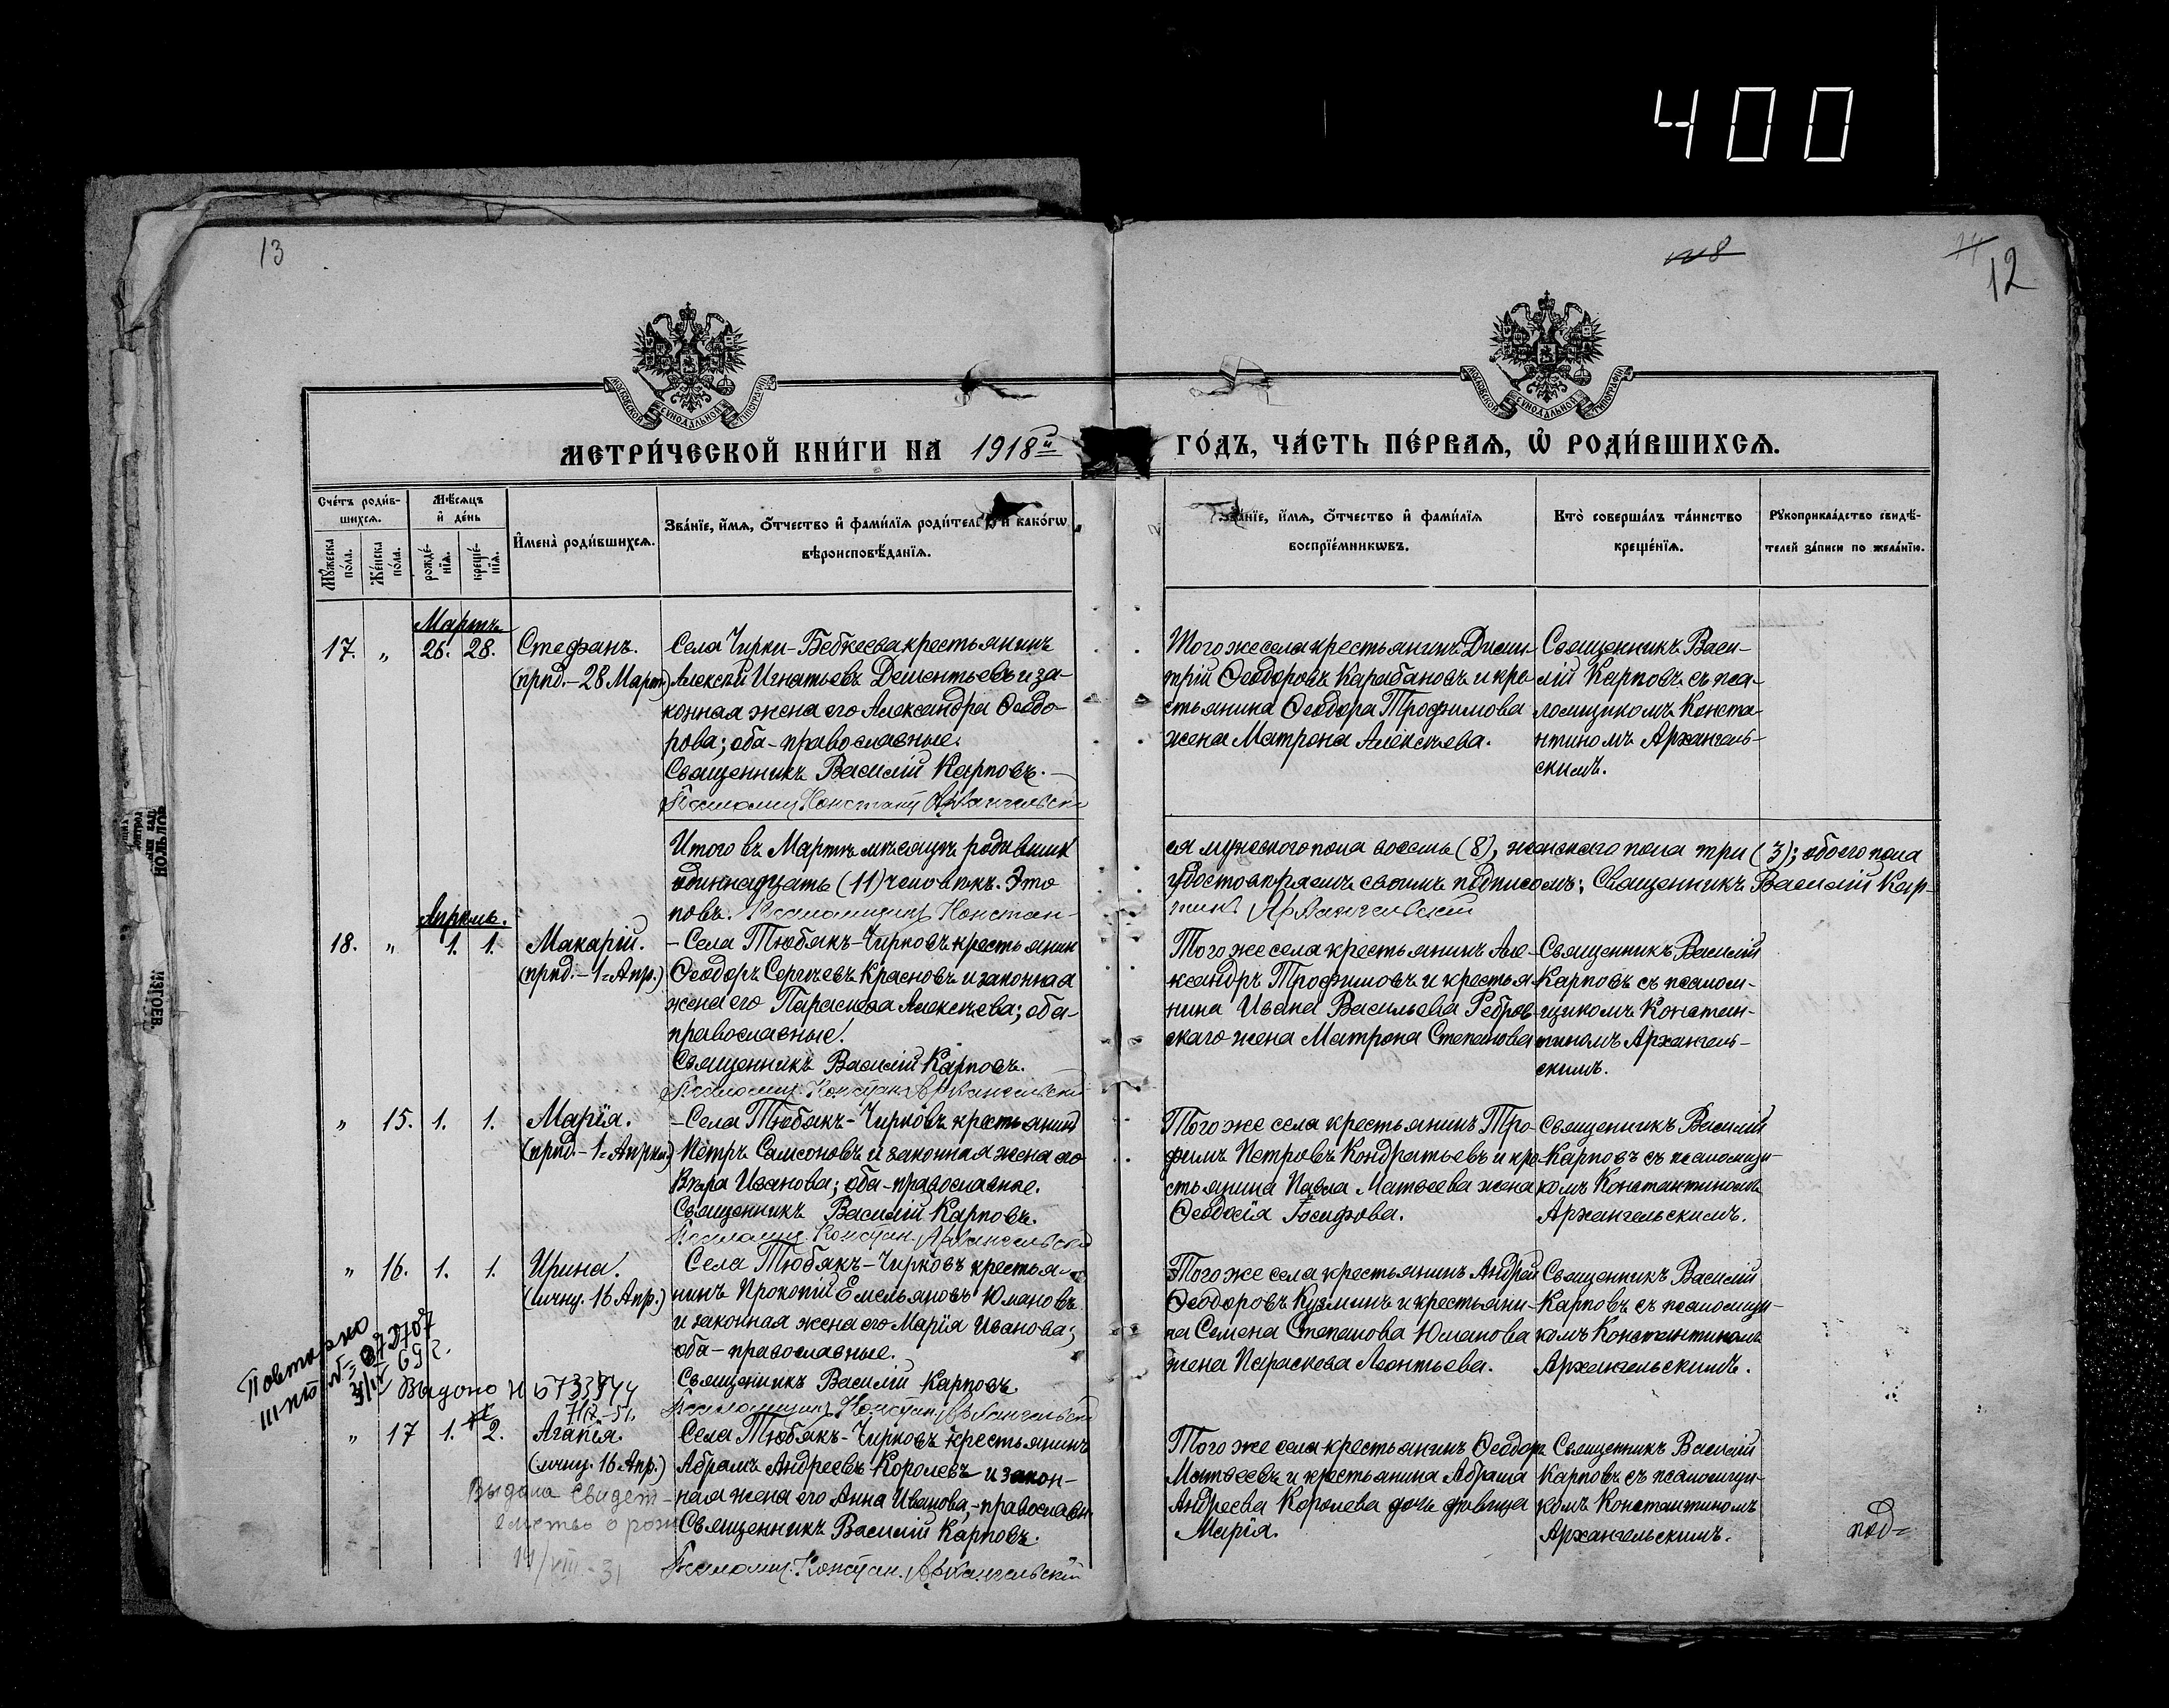 400
13
м8
12
МОСКОВСКОЙ СѴНОДАЛЬНОЙ ТИПОГРАФІИ
МОСКОВСКОЙ СѴНОДАЛЬНОЙ ТИПОГРАФІИ
МЕТРИ́ЧЕСКОЙ КНИ́ГИ НА 1918й
ГО́ДЪ, ЧА́СТЬ ПЕ́РВАѦ, Ѡ҆ РОДИ́ВШИХСѦ.
Сче́тъ роди́в-
шихсѧ.
Мꙋ́жеска по́ла.
Же́нска по́ла.
Мѣ́сѧцъ
и҆ де́нь
рожде́-
нїѧ.
креще́-
нїѧ.
И҆мена̀ роди́вшихсѧ.
Зва́нїе, и҆́мѧ, ѻ҆́тчество и҆ фами́лїѧ роди́телей, и҆ како́гѡ
вѣроисповѣ́данїѧ.
Зва́нїе, и҆́мѧ, ѻ҆́тчество и҆ фами́лїѧ
воспрїе́мникѡвъ.
Кто̀ соверша́лъ та́инство
креще́нїѧ.
Рꙋкоприкла́дство свидѣ́-
телей за́писи по жела́нїю.
Мартъ
17. „ 26. 28. Стефанъ.
(прпд.-28 Март.)
Села Чирки-Бебкеева крестьянинъ
Алексѣй Игнатьевъ Дементьевъ и за-
конная жена его Александра Ѳеодо-
рова; оба-православные.
Священникъ Василій Карповъ.
Псаломщ. Констант. Архангельскі
Того же села крестьянинъ Дими-
трій Ѳеодоровъ Карабановъ и кре-
стьянина Ѳеодора Трофимова
жена Матрона Алексѣева.
Священникъ Васи-
лій Карповъ съ пса-
ломщикомъ Конста-
нтиномъ Архангель-
скимъ.
Итого въ Мартѣ мѣсяцѣ родивших
одиннадцать (11) человѣкъ. Это
повъ. Псаломщикъ Констан-
ся мужескаго пола восемь (8), женскаго пола три (3); обоего пола
удостовѣряемъ своимъ подписомъ: Священникъ Василій Кар-
тинъ Архангельскій
Апрѣль.
18. „ 1. 1. Макарій.
(прпд.-1=Апр.)
-Села Тюбякъ-Чирковъ крестьянин
Ѳеодоръ Сергѣевъ Красновъ и законная
жена его Параскева Алексѣева; оба-
православные.
Священникъ Василій Карповъ.
Псаломщ. Констан. Архангельскій
Того же села крестьянинъ Але-
ксандръ Трофимовъ и крестья-
нина Ивана Васильева Ребров-
скаго жена Матрона Степанова
Священникъ Василій
Карповъ съ псалом-
щикомъ Констан-
тиномъ Архангель-
скимъ.
„ 15. 1. 1. Марія.
(прпд.-1=Апрѣл.)
-Села Тюбякъ-Чирковъ крестьянинъ
Петръ Самсоновъ и законная жена его
Вѣра Иванова; оба-православные.
Священникъ Василій Карповъ.
Псаломщ. Констан. Архангельскій
Того же села крестьянинъ Тро-
фимъ Петровъ Кондратьевъ и кре-
стьянина Павла Матвеева жена
Ѳеодосія Іосифова.
Священникъ Василій
Карповъ съ псаломщи-
комъ Константиномъ
Архангельскимъ.
„ 16. 1. 1. Ирина.
(мчнц. 16 Апр.)
Села Тюбякъ-Чирковъ крестья-
нинъ Прокопій Емельяновъ Юмановъ
и законная жена его Марія Иванова;
оба-православные.
Священникъ Василій Карповъ.
Псаломщикъ Констан. Архангельскі
Того же села крестьянинъ Андрей
Ѳеодоровъ Кузминъ и крестьяни-
на Семена Степанова Юманова
жена Параскева Леонтьева.
Священникъ Василій
Карповъ съ псаломщи-
комъ Константиномъ
Архангельскимъ.
Повторно
69 г.
Выдано
„ 17 1. 2. Агапія.
(мчнц. 16 Апр.)
Села Тюбякъ-Чирковъ крестьянинъ
Абрамъ Андреевъ Королевъ и закон-
ная жена его Анна Иванова,-православн.
Священникъ Василій Карповъ.
Псаломщ. Констан. Архангельскій
Выдана свидет-
ельство о рож
14/VIII-31
Того же села крестьянинъ Ѳеодоръ
Матвеевъ и крестьянина Абрама
Андреева Королева дочь дѣвица
Марія.
Священникъ Василій
Карповъ съ псаломщи-
комъ Константиномъ
Архангельскимъ.
под=